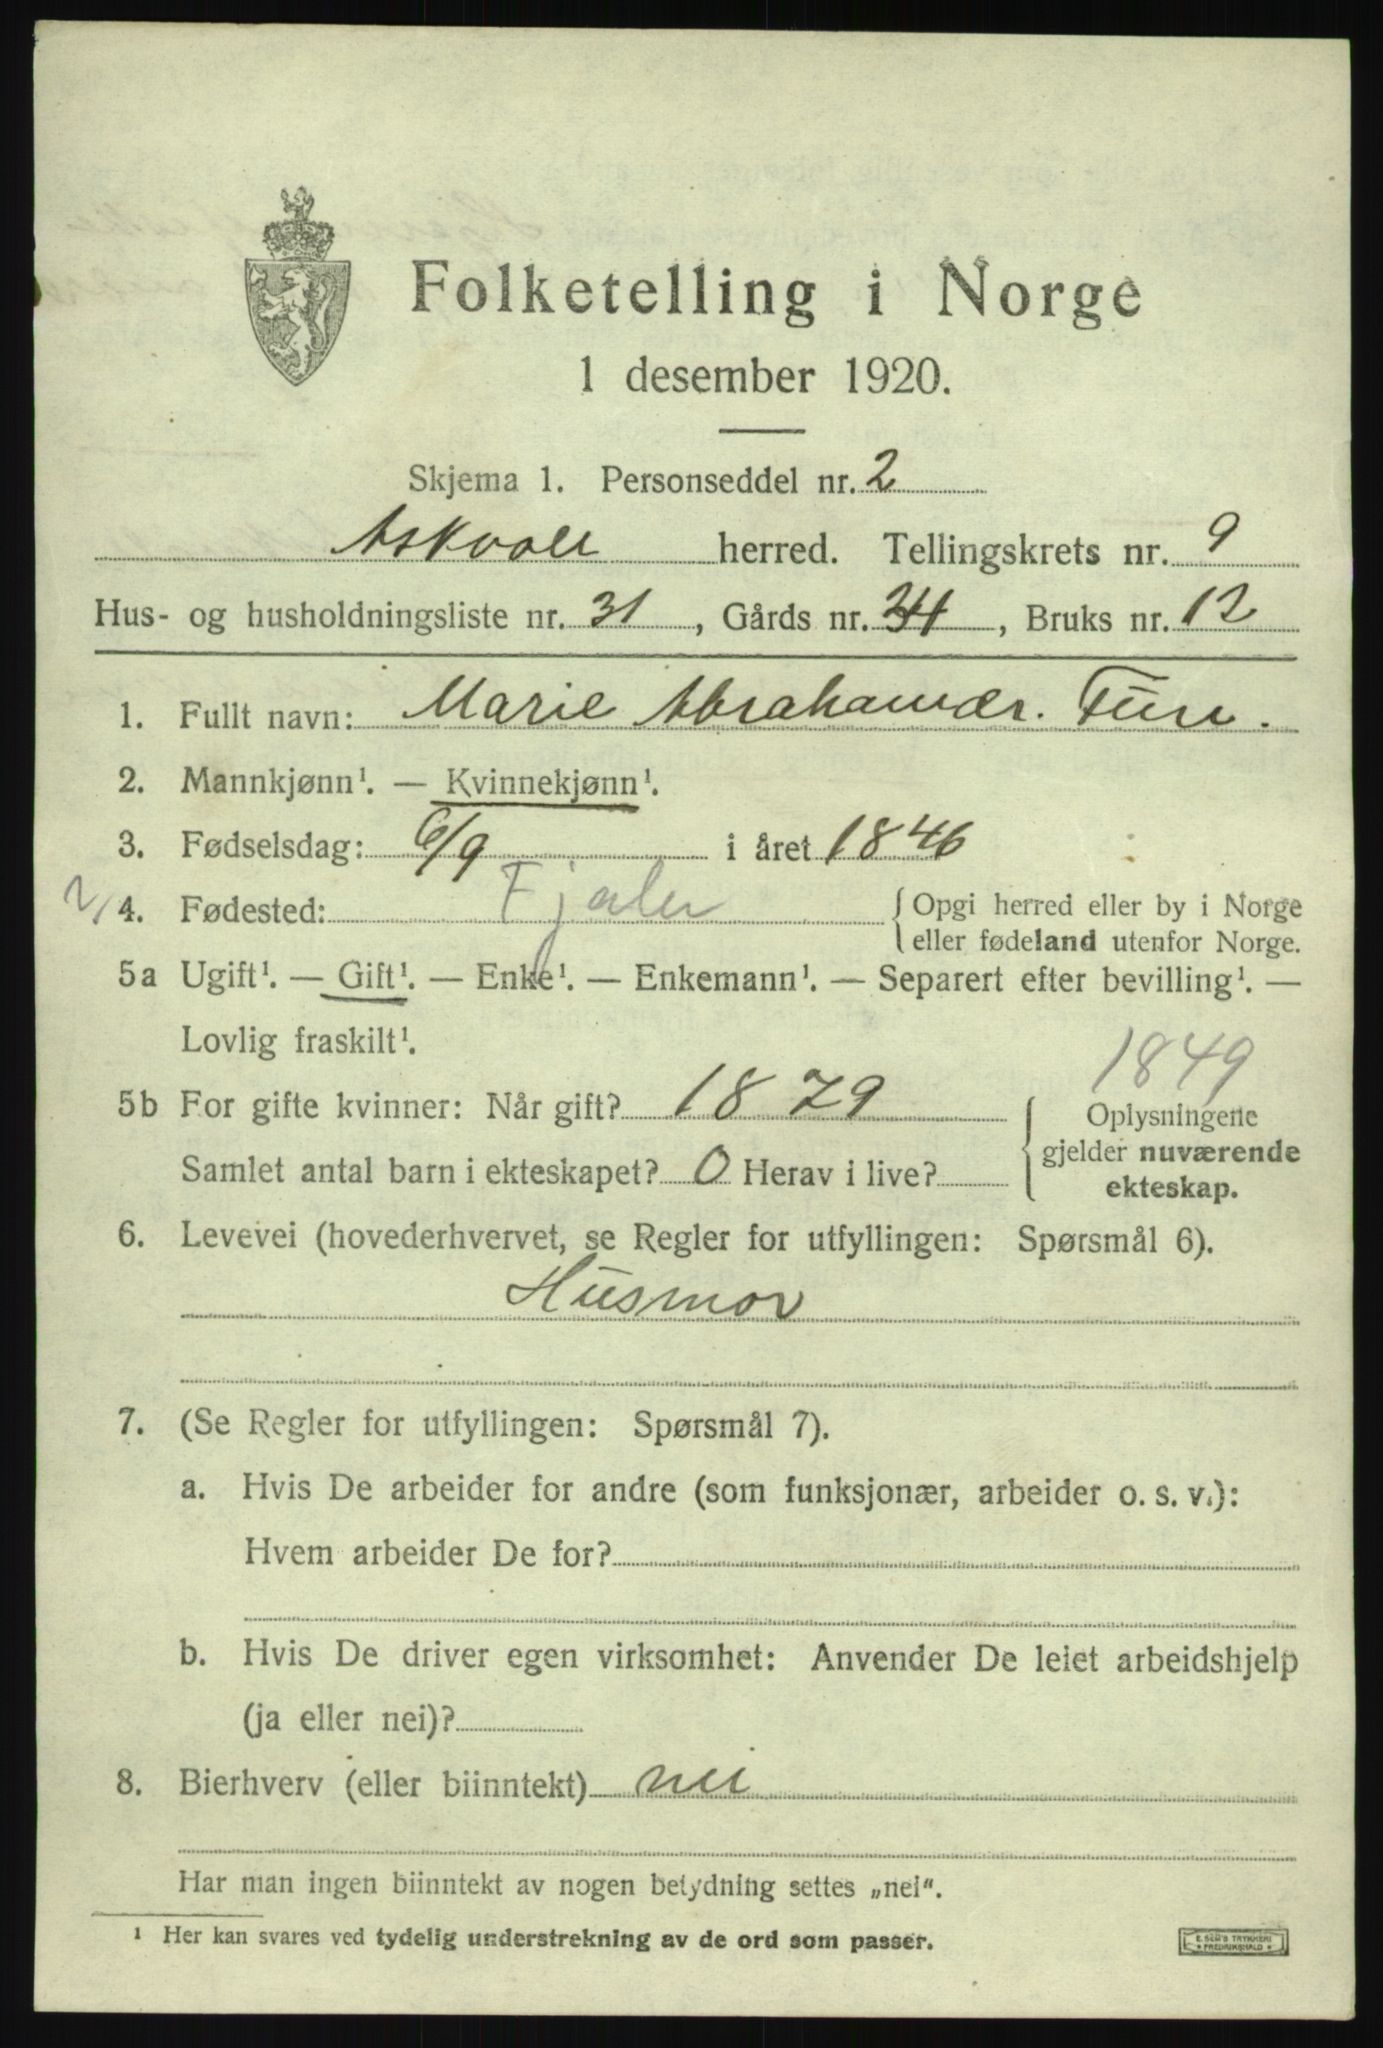 Folketelling i Norge
1 desember 1920.
Skjema 1. Personseddel nr. 2
Askvoll herred. Tellingskrets nr. 9
Hus- og husholdningsliste nr. 31, Gårds nr. 34, Bruks nr. 12
1. Fullt navn: Marie Abrahamsdr. Fure.
2. Mannkjønn¹. — Kvinnekjønn¹.
3. Fødselsdag: 6/9 i året 1846
4. Fødested: Fjaler { Opgi herred eller by i Norge
eller fødeland utenfor Norge.
5a Ugift¹. — Gift¹. — Enke¹. — Enkemann¹. — Separert efter bevilling¹. —
Lovlig fraskilt¹.
1849
5b For gifte kvinner: Når gift? 1879 { Oplysningene
gjelder nuværende
Samlet antal barn i ekteskapet? 0 Herav i live?
ekteskap.
6. Levevei (hovederhvervet, se Regler for utfyllingen: Spørsmål 6).
Husmor
7. (Se Regler for utfyllingen: Spørsmål 7).
a. Hvis De arbeider for andre (som funksjonær, arbeider o. s. v.):
Hvem arbeider De for?
b. Hvis De driver egen virksomhet: Anvender De leiet arbeidshjelp
(ja eller nei)?
8. Bierhverv (eller biinntekt) nei
Har man ingen biinntekt av nogen betydning settes „nei“.
¹ Her kan svares ved tydelig understrekning av de ord som passer.
E. SEM'S TRYKKERI
FREDRIKSHALD